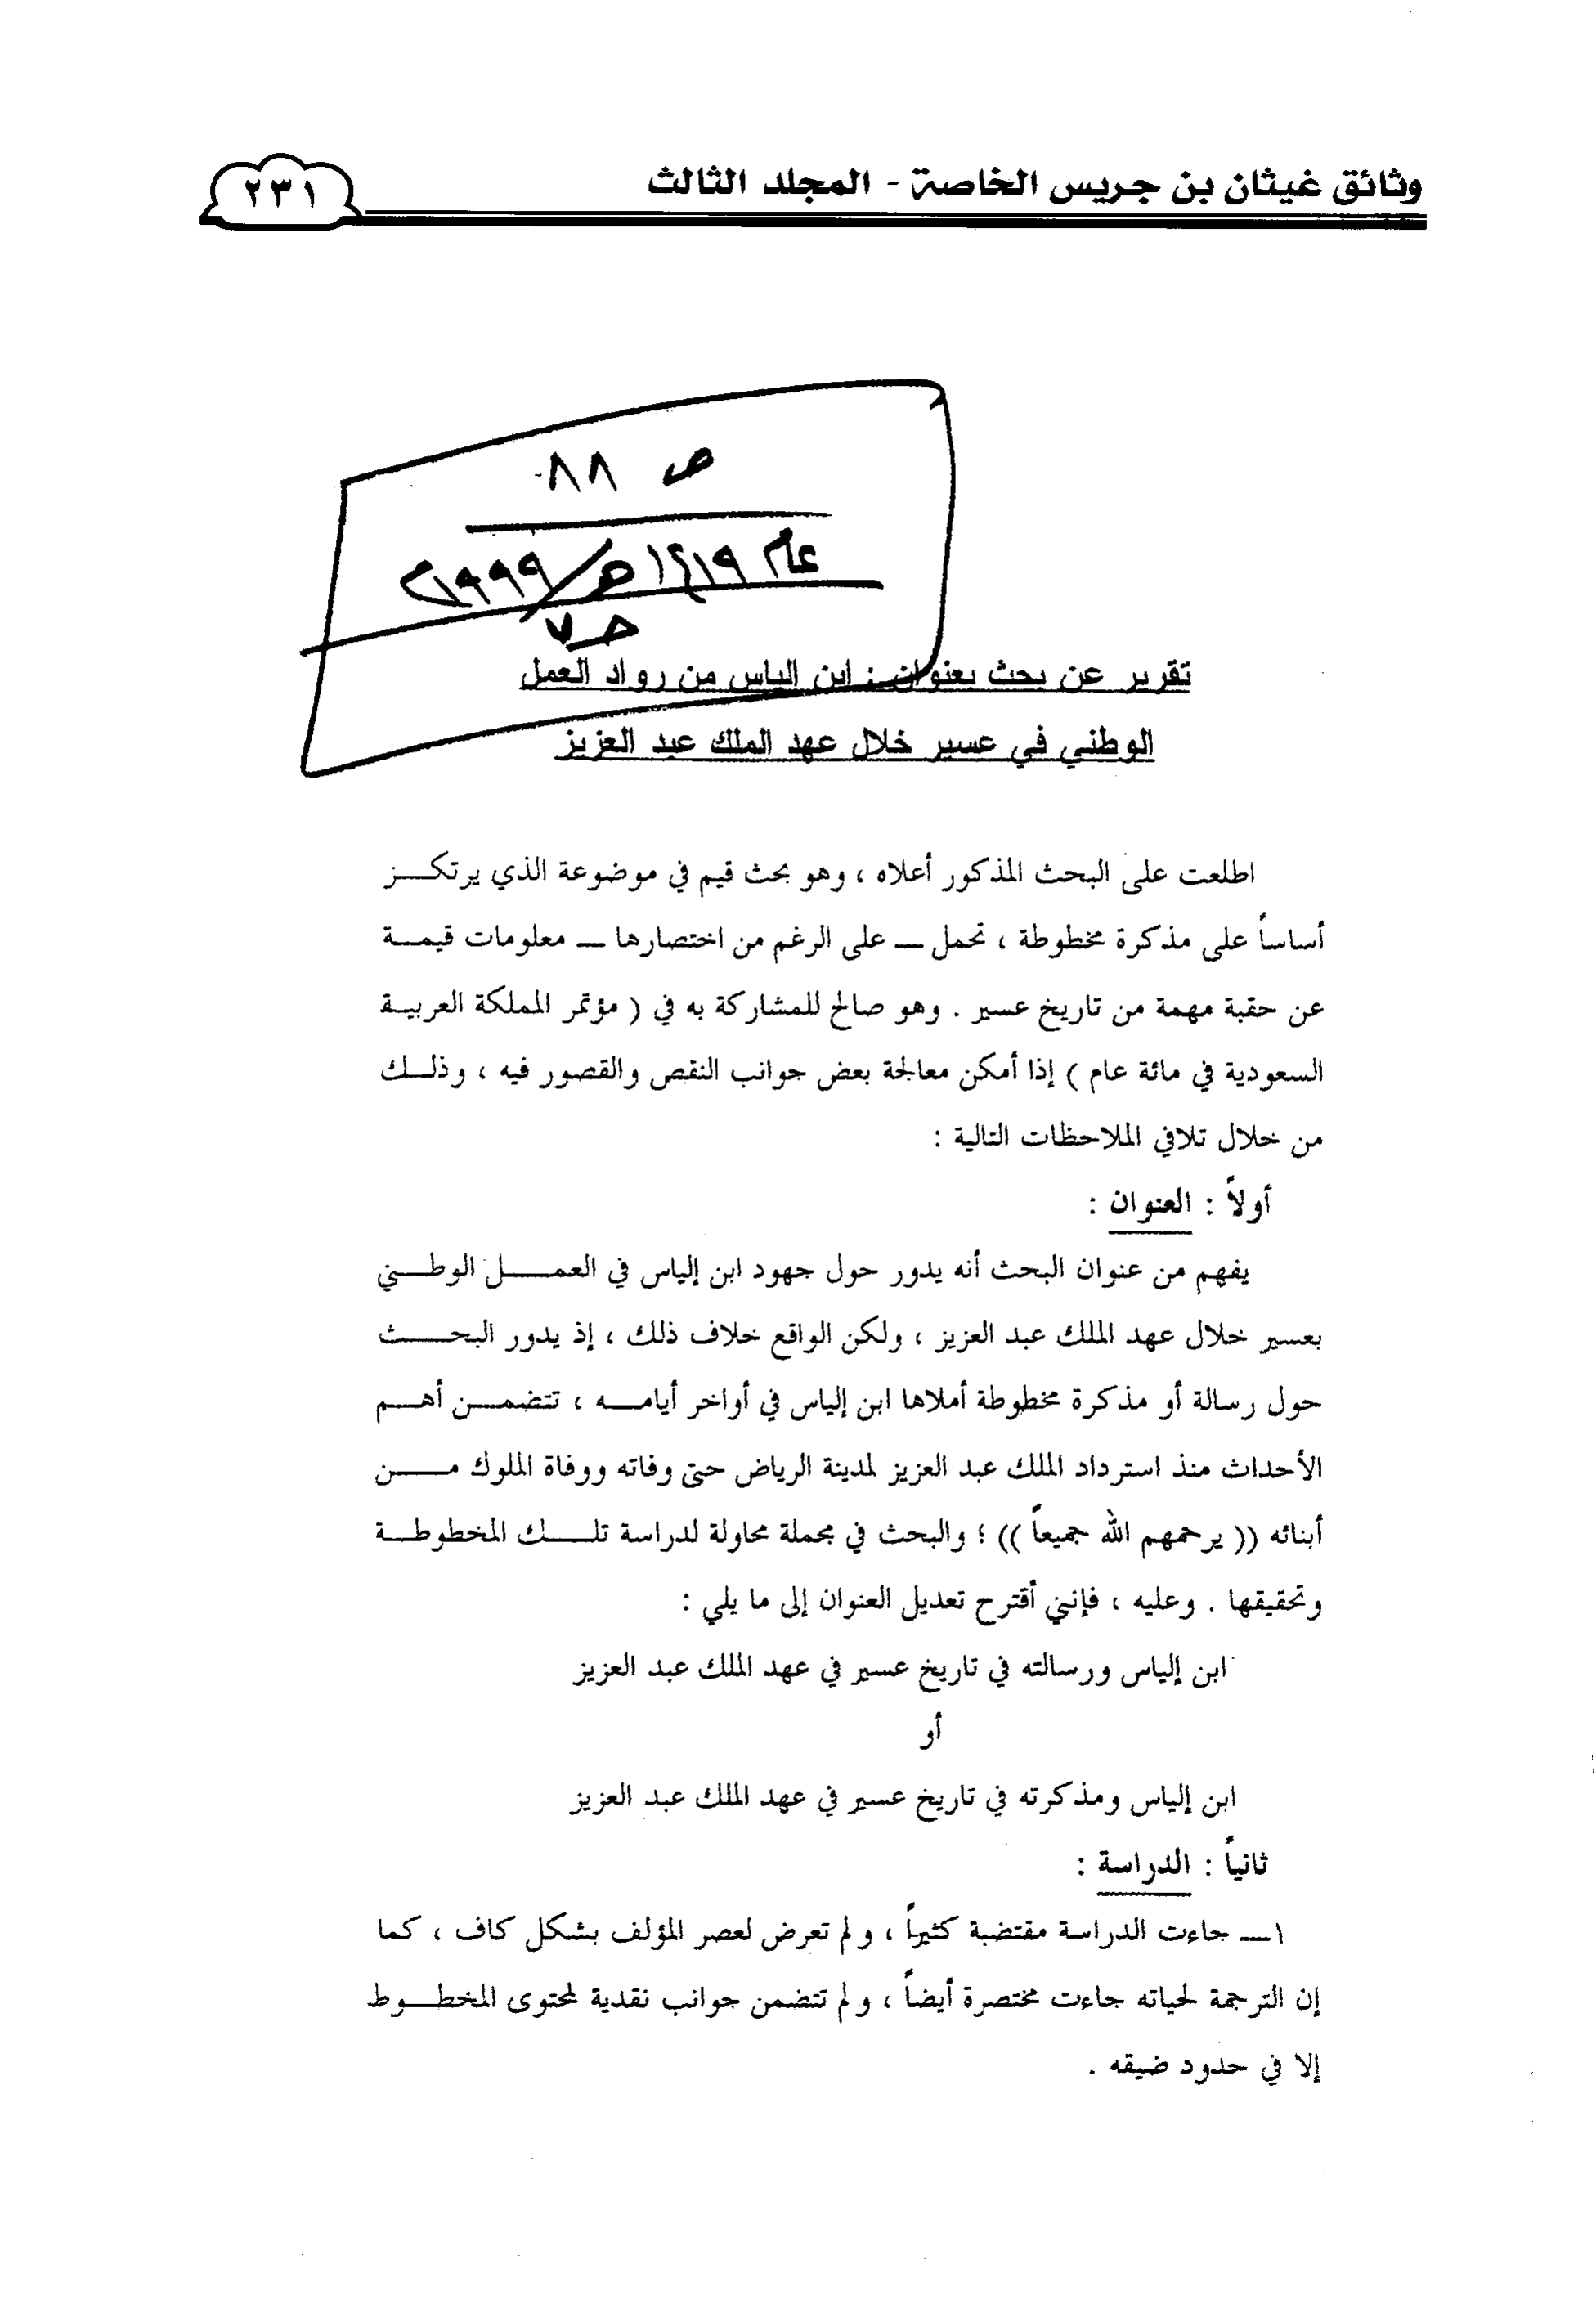 وثائق غيثان بن جريس الخاصة - المجلد الثالث
٢٣١
ص ٨٨
عام ١٤١٩هـ/١٩٩٩م
حـ٧
تقرير عن بحث بعنوان : ابن الياس من رواد العمل
الوطني في عسير خلال عهد الملك عبد العزيز
اطلعت على البحث المذكور أعلاه ، وهو بحث قيم في موضوعة الذي يرتكـــز
أساساً على مذكرة مخطوطة ، تحمل — على الرغم من اختصارها — معلومات قيمـــة
عن حقبة مهمة من تاريخ عسير . وهو صالح للمشاركة به في ( مؤتمر المملكة العربيـة
السعودية في مائة عام ) إذا أمكن معالجة بعض جوانب النقص والقصور فيه ، وذلـــك
من خلال تلافي الملاحظات التالية :
أولاً : العنوان :
يفهم من عنوان البحث أنه يدور حول جهود ابن إلياس في العمـــل الوطـــني
بعسير خلال عهد الملك عبد العزيز ، ولكن الواقع خلاف ذلك ، إذ يدور البحـــث
حول رسالة أو مذكرة مخطوطة أملاها ابن إلياس في أواخر أيامـــه ، تتضمـــن أهـــم
الأحداث منذ استرداد الملك عبد العزيز لمدينة الرياض حتى وفاته ووفاة الملوك مـــن
أبنائه (( يرحمهم الله جميعاً )) ؛ والبحث في مجملة محاولة لدراسة تلـــك المخطوطـــة
وتحقيقها . وعليه ، فإنني أقترح تعديل العنوان إلى ما يلي :
ابن إلياس ورسالته في تاريخ عسير في عهد الملك عبد العزيز
أو
ابن إلياس ومذكرته في تاريخ عسير في عهد الملك عبد العزيز
ثانياً : الدراسة :
١— جاءت الدراسة مقتضبة كثيراً ، ولم تعرض لعصر المؤلف بشكل كاف ، كما
إن الترجمة لحياته جاءت مختصرة أيضاً ، ولم تتضمن جوانب نقدية لمحتوى المخطـــوط
إلا في حدود ضيقه .